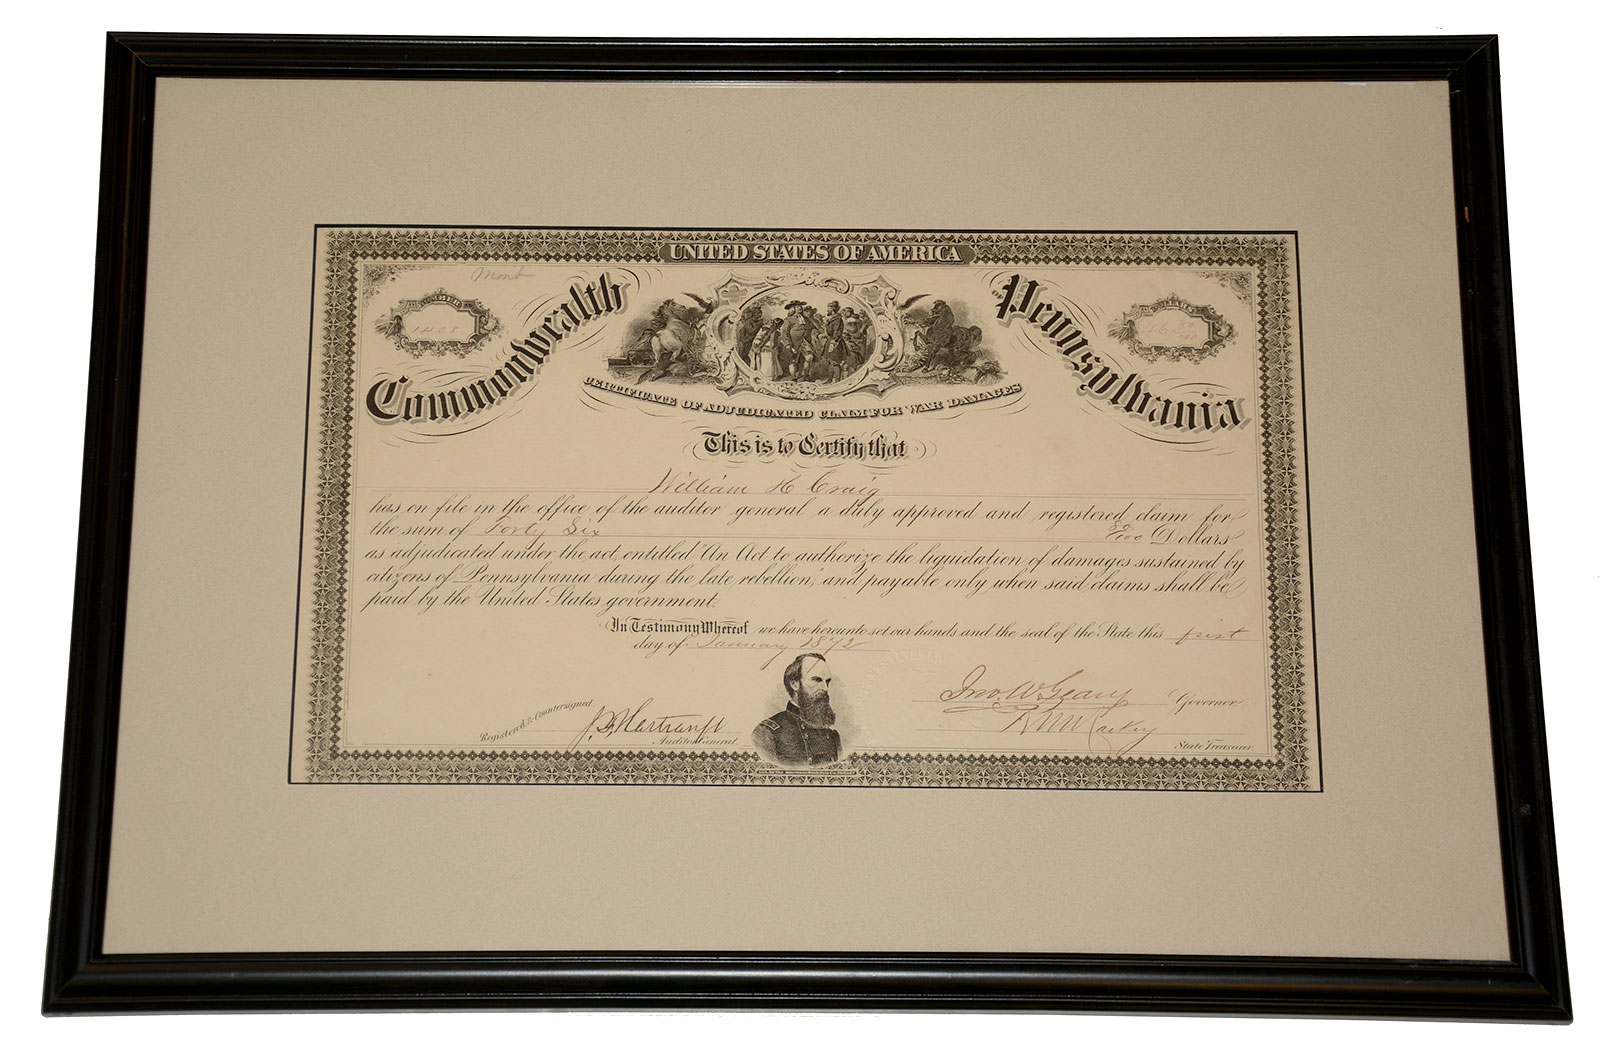 UNITED STATES OF AMERICA
Mont
NUMBER
1408
Commonwealth
of Pennsylvania
DOLLARS
46 80/100
CERTIFICATE OF ADJUDICATED CLAIM FOR WAR DAMAGES
This is to Certify that
William H Craig
has on file in the office of the auditor general a duly approved and registered claim for
the sum of Forty Six 80/100 Dollars
as adjudicated under the act, entitled "An Act to authorize the liquidation of damages sustained by
citizens of Pennsylvania during the late rebellion," and payable only when said claims shall be
paid by the United States government.
In Testimony Whereof we have hereunto set our hands and the seal of the State this first
day of January 1872
Registered & Countersigned
J. F. Hartranft
Auditor General
Jno. W. Geary Governor
R W Mackey
State Treasurer